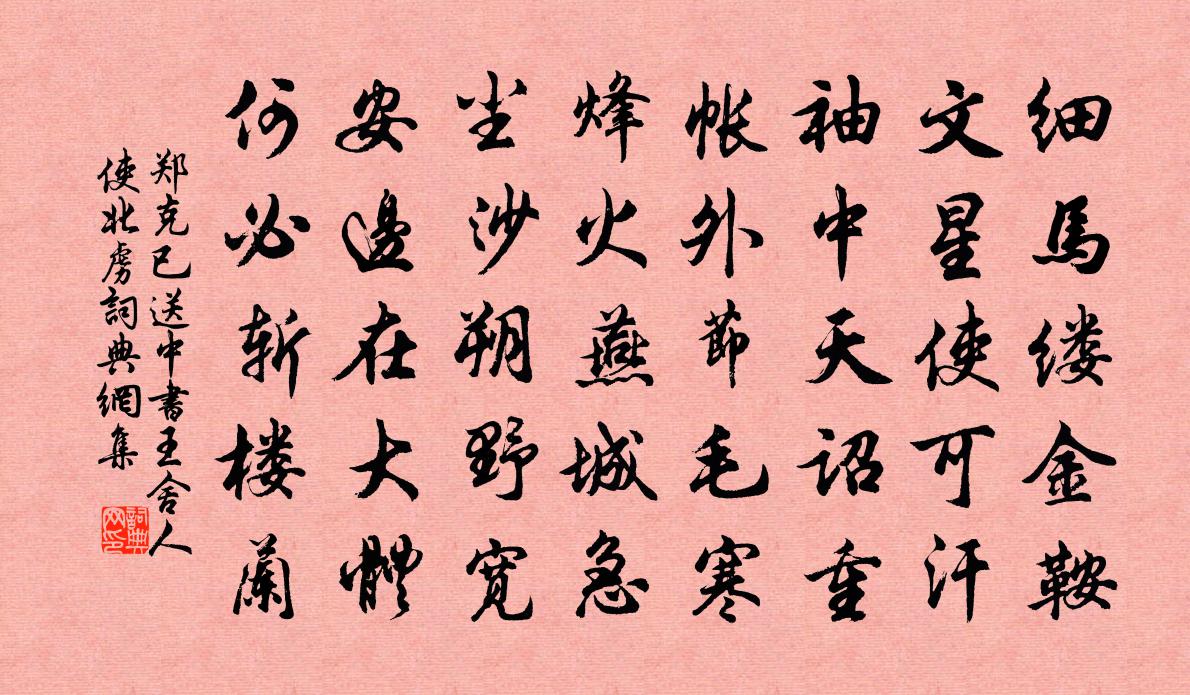 细馬缕金鞍
文星使可汗
袖中天诏重
帐外節毛寒
烽火燕城急
尘沙朔野寛
安邊在大體
何必斩楼蘭
郑克已送中書王舍人
使北虏詞典網集
詞典网印